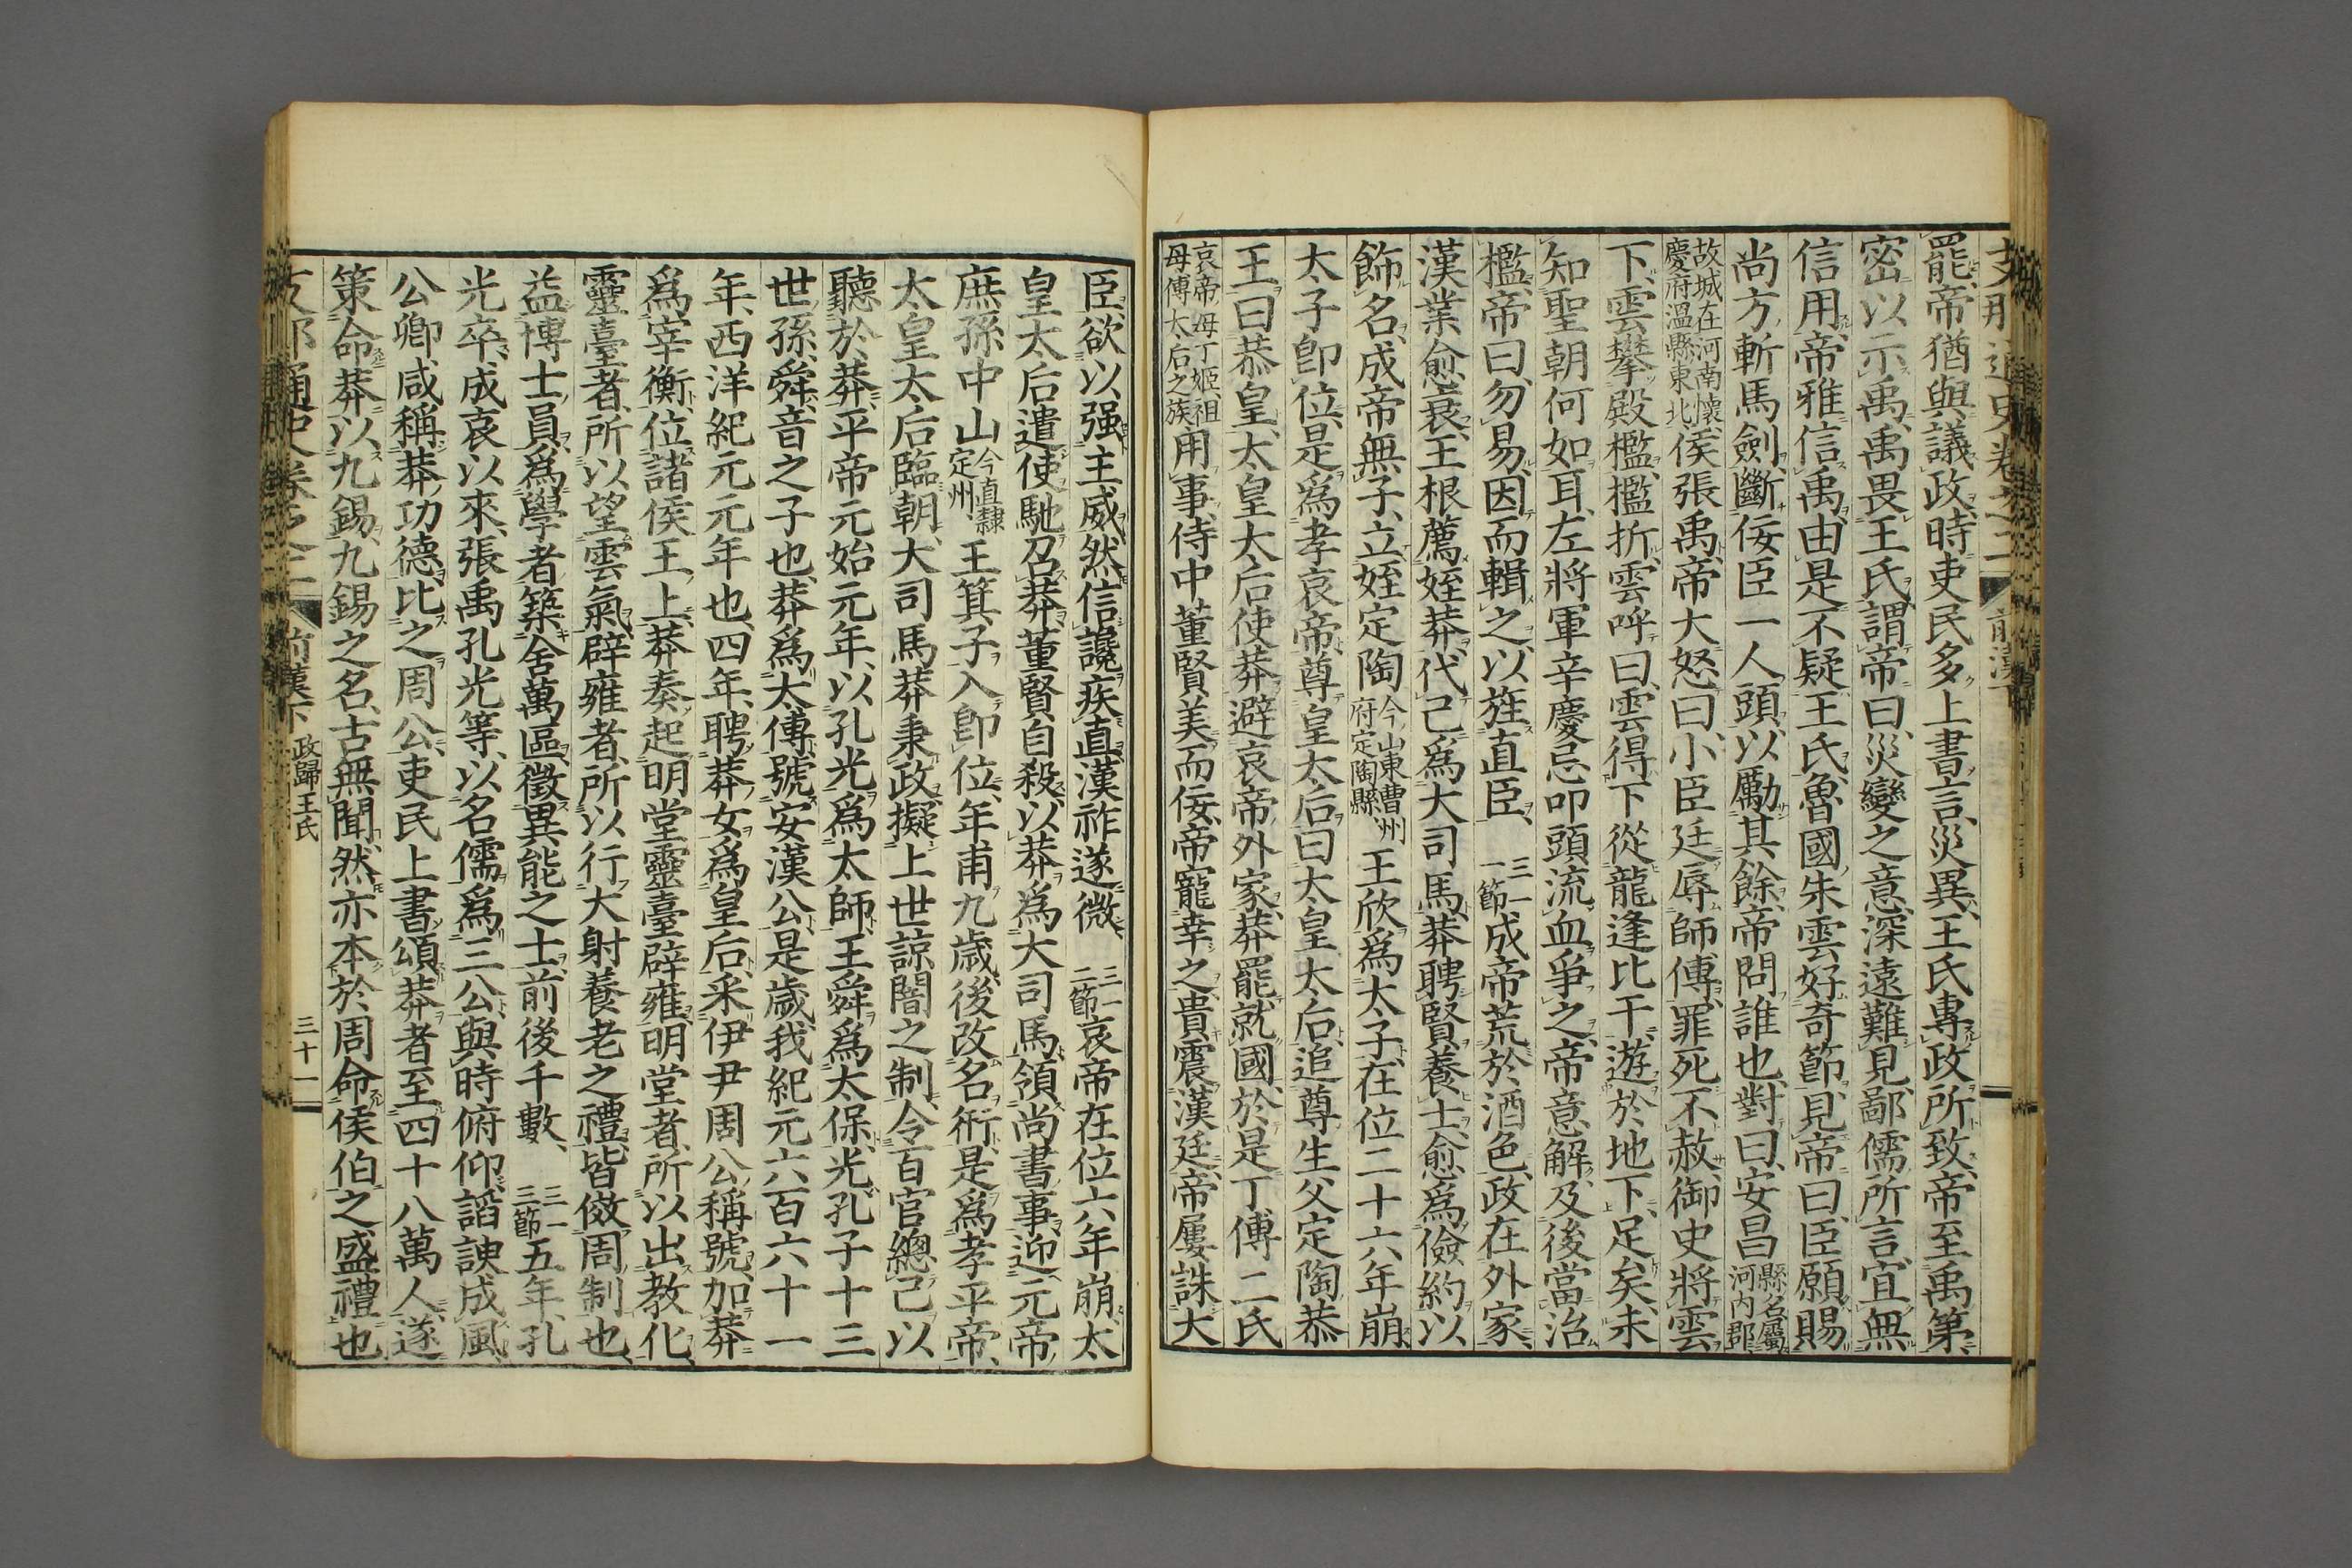 支那通史卷之二 前漢下
罷、帝猶與議政、時吏民多上書言災異、王氏專政所致、帝至禹第、
密以示禹、禹畏王氏、謂帝曰、災變之意、深遠難見、鄙儒所言、宜無
信用、帝雅信禹、由是不疑王氏、魯國朱雲好奇節、見帝曰、臣願賜
尚方斬馬劍、斷佞臣一人頭、以勵其餘、帝問誰也、對曰、安昌縣名、屬河內郡、
故城在河南懷慶府溫縣東北、侯張禹、帝大怒曰、小臣廷辱師傅、罪死不赦、御史將雲
下、雲攀殿檻、檻折、雲呼曰、雲得下從龍逢比干、遊於地下足矣、未
知聖朝何如耳、左將軍辛慶忌叩頭流血爭之、帝意解、及後當治
檻、帝曰、勿易、因而輯之、以旌直臣、三一一節成帝荒於酒色、政在外家、
漢業愈衰、王根薦姪莽、代己爲大司馬、莽聘賢養士、愈爲儉約以
飾名、成帝無子、立姪定陶今山東曹州府定陶縣、王欣爲太子、在位二十六年崩、
太子卽位、是爲孝哀帝、尊皇太后曰太皇太后、追尊生父定陶恭
王曰恭皇、太皇太后使莽避哀帝外家、莽罷就國、於是丁傅二氏
哀帝母丁姬、祖母傅太后之族用事、侍中董賢美而佞、帝寵幸之、貴震漢廷、帝屢誅大
臣、欲以强主威、然信讒疾直、漢祚遂微、三一二節哀帝在位六年崩、太
皇太后遣使馳召莽、董賢自殺、以莽爲大司馬、領尚書事、迎元帝
庶孫中山今直隸定州、王箕子入卽位、年甫九歲、後改名衎、是爲孝平帝、
太皇太后臨朝、大司馬莽秉政、擬上世諒闇之制、令百官總己以
聽於莽、平帝元始元年、以孔光爲太師、王舜爲太保、光孔子十三
世孫、舜、音之子也、莽爲太傅、號安漢公、是歲我紀元六百六十一
年、西洋紀元元年也、四年、聘莽女爲皇后、采伊尹周公稱號、加莽
爲宰衡、位諸侯王上、莽奏起明堂靈臺辟雍、明堂者、所以出敎化、
靈臺者、所以望雲氣、辟雍者、所以行大射養老之禮、皆倣周制也、
益博士員、爲學者築舍萬區、徵異能之士、前後千數、三一三節五年、孔
光卒、成哀以來、張禹孔光等、以名儒爲三公、與時俯仰、諂諛成風、
公卿咸稱莽功德、比之周公、吏民上書頌莽者、至四十八萬人、遂
策命莽以九錫、九錫之名、古無聞、然亦本於周命侯伯之盛禮也
支那通史卷之二 前漢下 政歸王氏 三十一